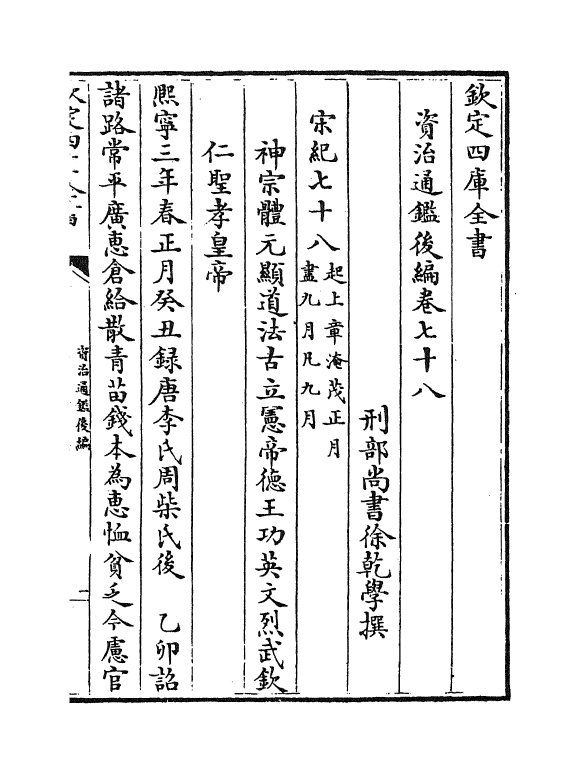 欽定四庫全書
資治通鑑後編卷七十八
刑部尚書徐乾學撰
宋紀七十八起上章淹茂正月盡九月凡九月
神宗體元顯道法古立憲帝德王功英文烈武欽
仁聖孝皇帝
熙寧三年春正月癸丑録唐李氏周柴氏後　乙卯詔
諸路常平廣惠倉給散青苗錢本為惠恤貧乏今慮官
資治通鑑後編